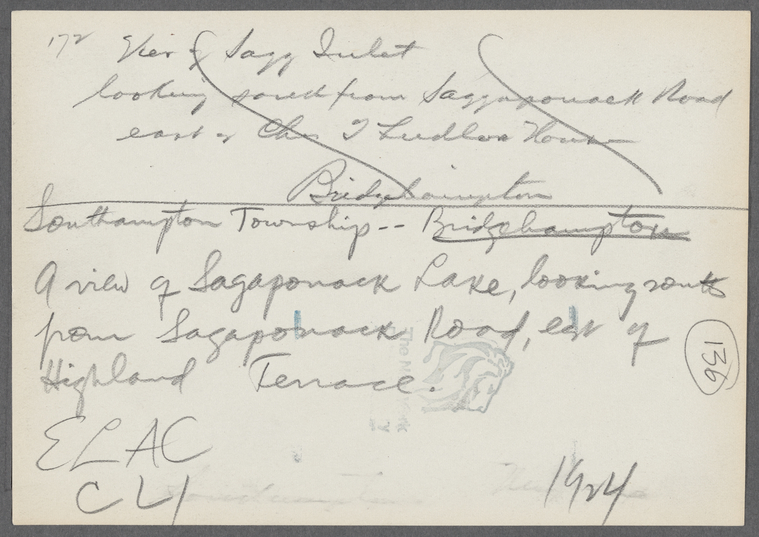 172 View of Sagg Inlet
looking south from Saggaponack Road
east of Chas T Ludlow House
Bridgehampton
Southampton Township -- Bridgehampton
A view of Sagaponack Lake, looking south
from Sagaponack Road, east of
Highland Terrace.
136
ELAC
CLY
1924